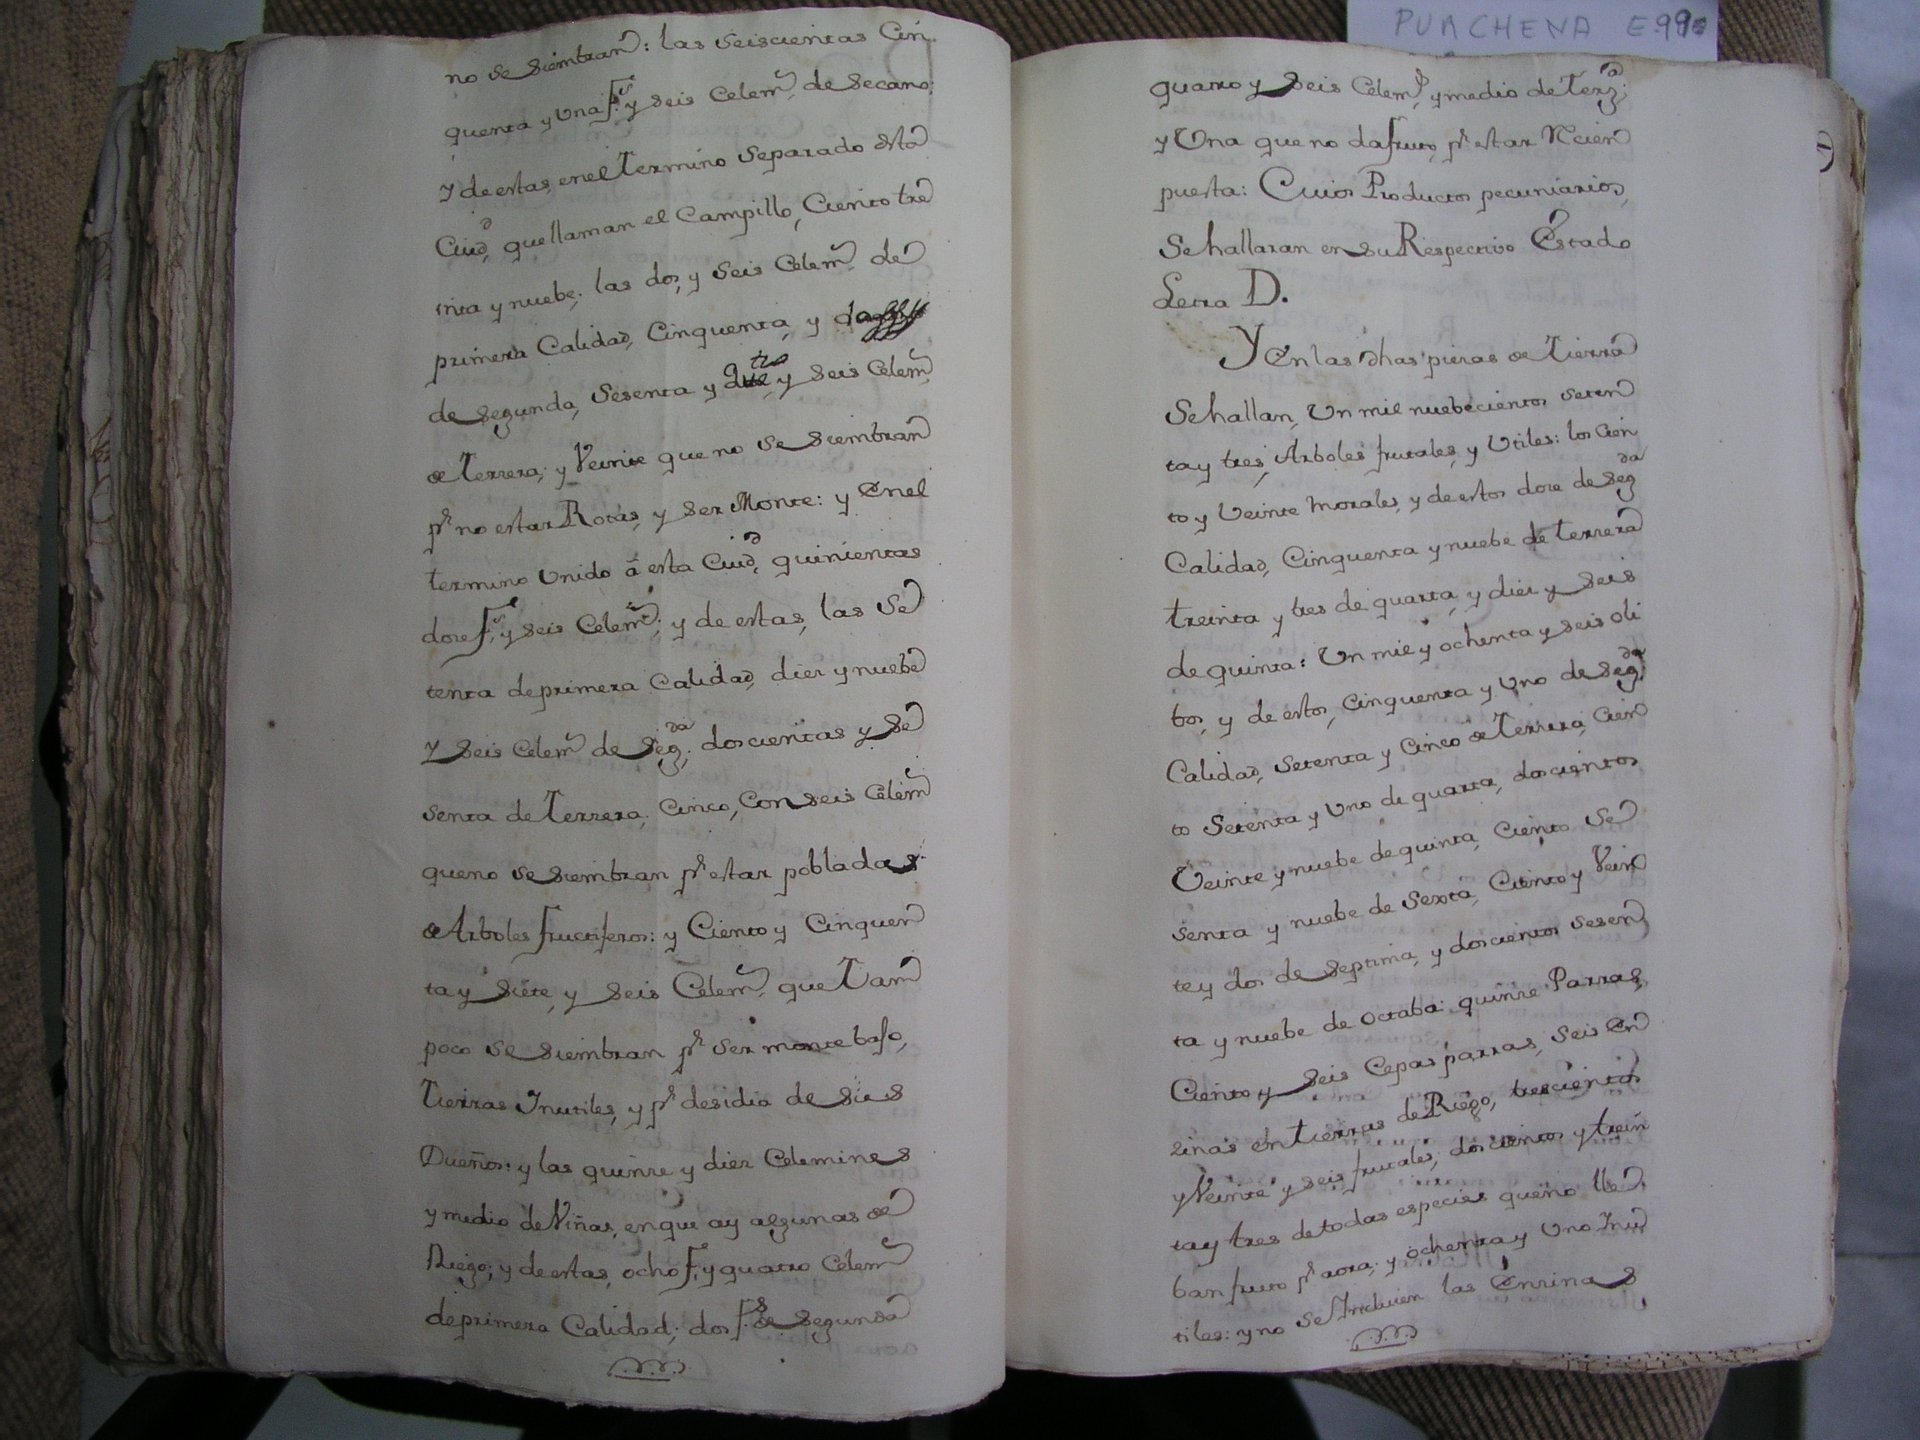 no se siembran: las seiscientas Cin
quenta y una f.s y seis Celem.s de secano;
y de estas, en el Termino separado desta
Ciud.d que llaman el Campillo, Ciento tre
inta y nuebe; las dos, y seis Celem.s de
primera Calidad, Cinquenta, y
de segunda, Sesenta y tres y seis Celem.s
de Terzera; y Veinte que no se siembran
p.r no estar Rotas, y ser Monte: y En el
termino unido â esta Ciud.d quinientas
doze f.s y seis Celem.s; y de estas, las Se
tenta de primera Calidad, diez y nuebe
y seis Celem.s de Seg.da; doscientas y Se
senta de Terzera, Cinco, Con seis Celem.s
que no se siembran p.r estar pobladas
de Arboles fructiferos: y Ciento y Cinquen
ta y siete, y seis Celem.s que Tam
poco se siembran p.r ser monte bajo,
Tierras Inutiles, y p.r desidia de sus
Dueños: y las quinze y diez Celemines
y medio de Viñas, en que ay algunas de
Riego; y de estas, ocho f.s y quatro Celem.s
de primera Calidad; dos f.s de segunda
PURCHENA E990
quatro y seis Celem.s y medio de Terz.a;
y Una que no da fruto, p.r estar Rezien
puesta: Cuios Productos pecuniarios,
Se hallaran en su Respectivo Estado
Letra D.
Y En las dhas piezas de Tierra
Se hallan, Un mil nuebecientos seten
ta y tres, Arboles frutales, y Utiles: los Cien
to y Veinte Morales, y de estos doze de Seg.da
Calidad, Cinquenta y nuebe de terzera
treinta y tres de quarta, y diez y seis
de quinta: Un mil y ochenta y seis oli
bos, y de estos, Cinquenta y Uno de Seg.da
Calidad, Setenta y Cinco de Terzera, Cien
to Setenta y Uno de quarta, doscientos
Veinte y nuebe de quinta, Ciento Se
senta y nuebe de Sexta, Ciento y Vein
te y dos de Septima, y doscientos sesen
ta y nuebe de octaba: quinze Parras,
Ciento y seis Cepas parras, seis En
zinas en tierras de Riego, trescientos
y Veinte y seis frutales, doscientos y trein
ta y tres de todas especies que no lle
ban fruto p.r aora; y ochenta y Uno Inu
tiles: y no se Incluien las Enzinas